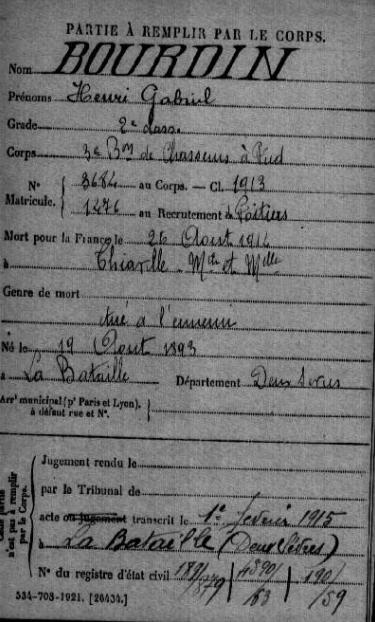 PARTIE À REMPLIR PAR LE CORPS.
Nom BOURDIN
Prénoms Henri Gabriel
Grade 2e class.
Corps 3e Bon de Chasseurs à Pied
N° Matricule. { 3684 au Corps. — Cl. 1913
1276 au Recrutement de Poitiers
Mort pour la France le 26 Août 1914
à Thiaville Mthe et Melle
Genre de mort
tué à l'ennemi
Né le 19 Août 1893
à La Bataille Département Deux Sèvres
Arrt municipal (pr Paris et Lyon), à défaut rue et N°. {
Cette partie n'est pas à remplir par le Corps. {
Jugement rendu le
par le Tribunal de
acte ou jugement transcrit le 1er février 1915
à La Bataille (Deux Sèvres)
N° du registre d'état civil
534-708-1921. [26434.]